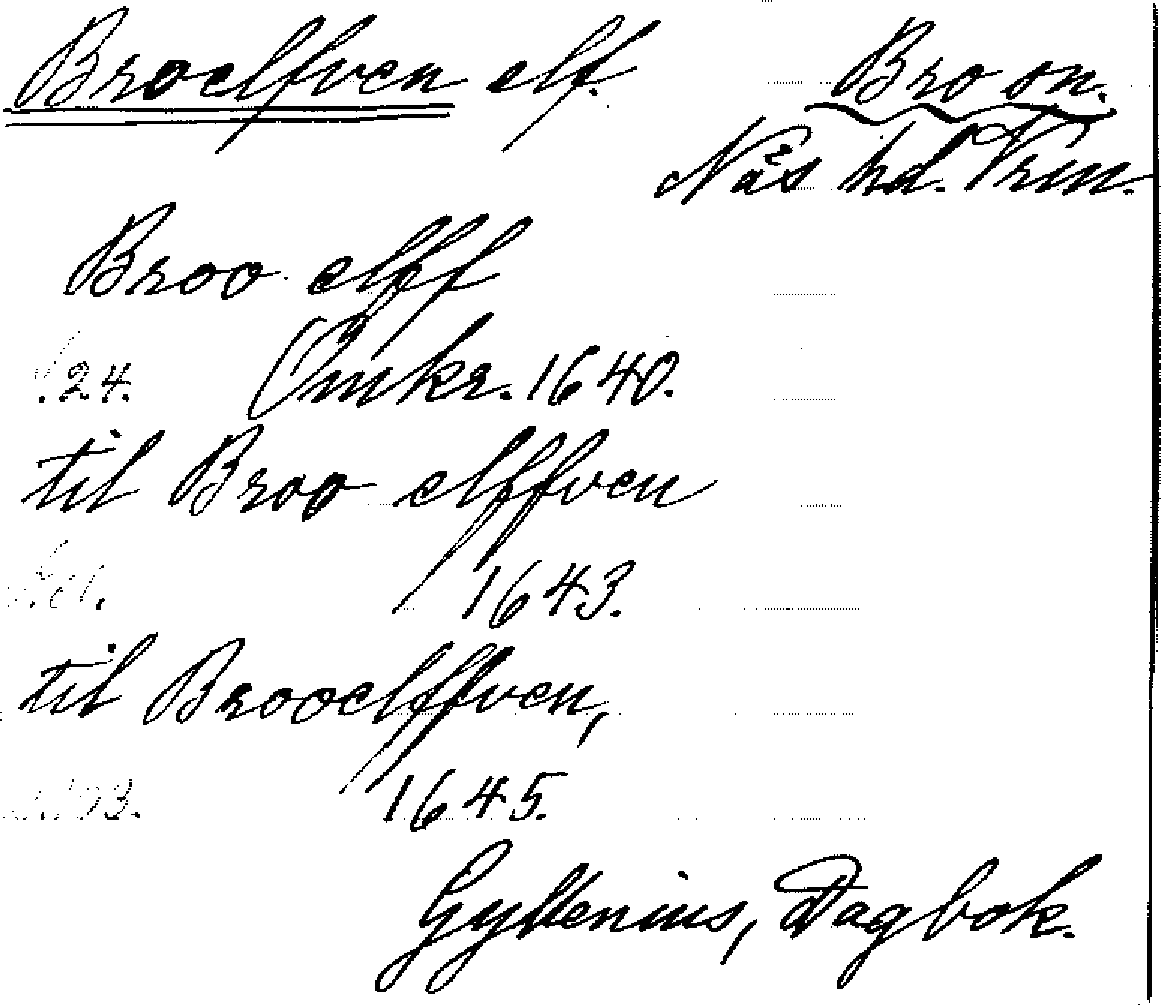 Broelfven elf. Bro sn.
Näs hd. Vrm.
Broo elff
s. 24. Omkr. 1640.
til Broo elffven
1643.
til Brooelffven,
1645.
Gyllenius, Dagbok.